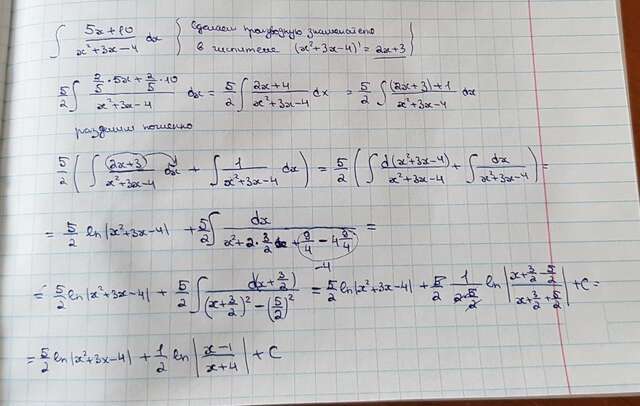 ∫ (5x+10)/(x²+3x-4) dx { Сделаем производную знаменателя
в числителе (x²+3x-4)' = 2x+3 }
5/2 ∫ (2/5·5x + 2/5·10)/(x²+3x-4) dx = 5/2 ∫ (2x+4)/(x²+3x-4) dx = 5/2 ∫ ((2x+3)+1)/(x²+3x-4) dx
разделим почленно
5/2 ( ∫ (2x+3)/(x²+3x-4) dx + ∫ 1/(x²+3x-4) dx ) = 5/2 ( ∫ d(x²+3x-4)/(x²+3x-4) + ∫ dx/(x²+3x-4) ) =
= 5/2 ln|x²+3x-4| + 5/2 ∫ dx/(x²+2·3/2x+9/4-4 9/4) =
-4
= 5/2 ln|x²+3x-4| + 5/2 ∫ d(x+3/2)/((x+3/2)²-(5/2)²) = 5/2 ln|x²+3x-4| + 5/2 1/(2·5/2) ln|(x+3/2-5/2)/(x+3/2+5/2)| + C =
= 5/2 ln|x²+3x-4| + 1/2 ln|(x-1)/(x+4)| + C